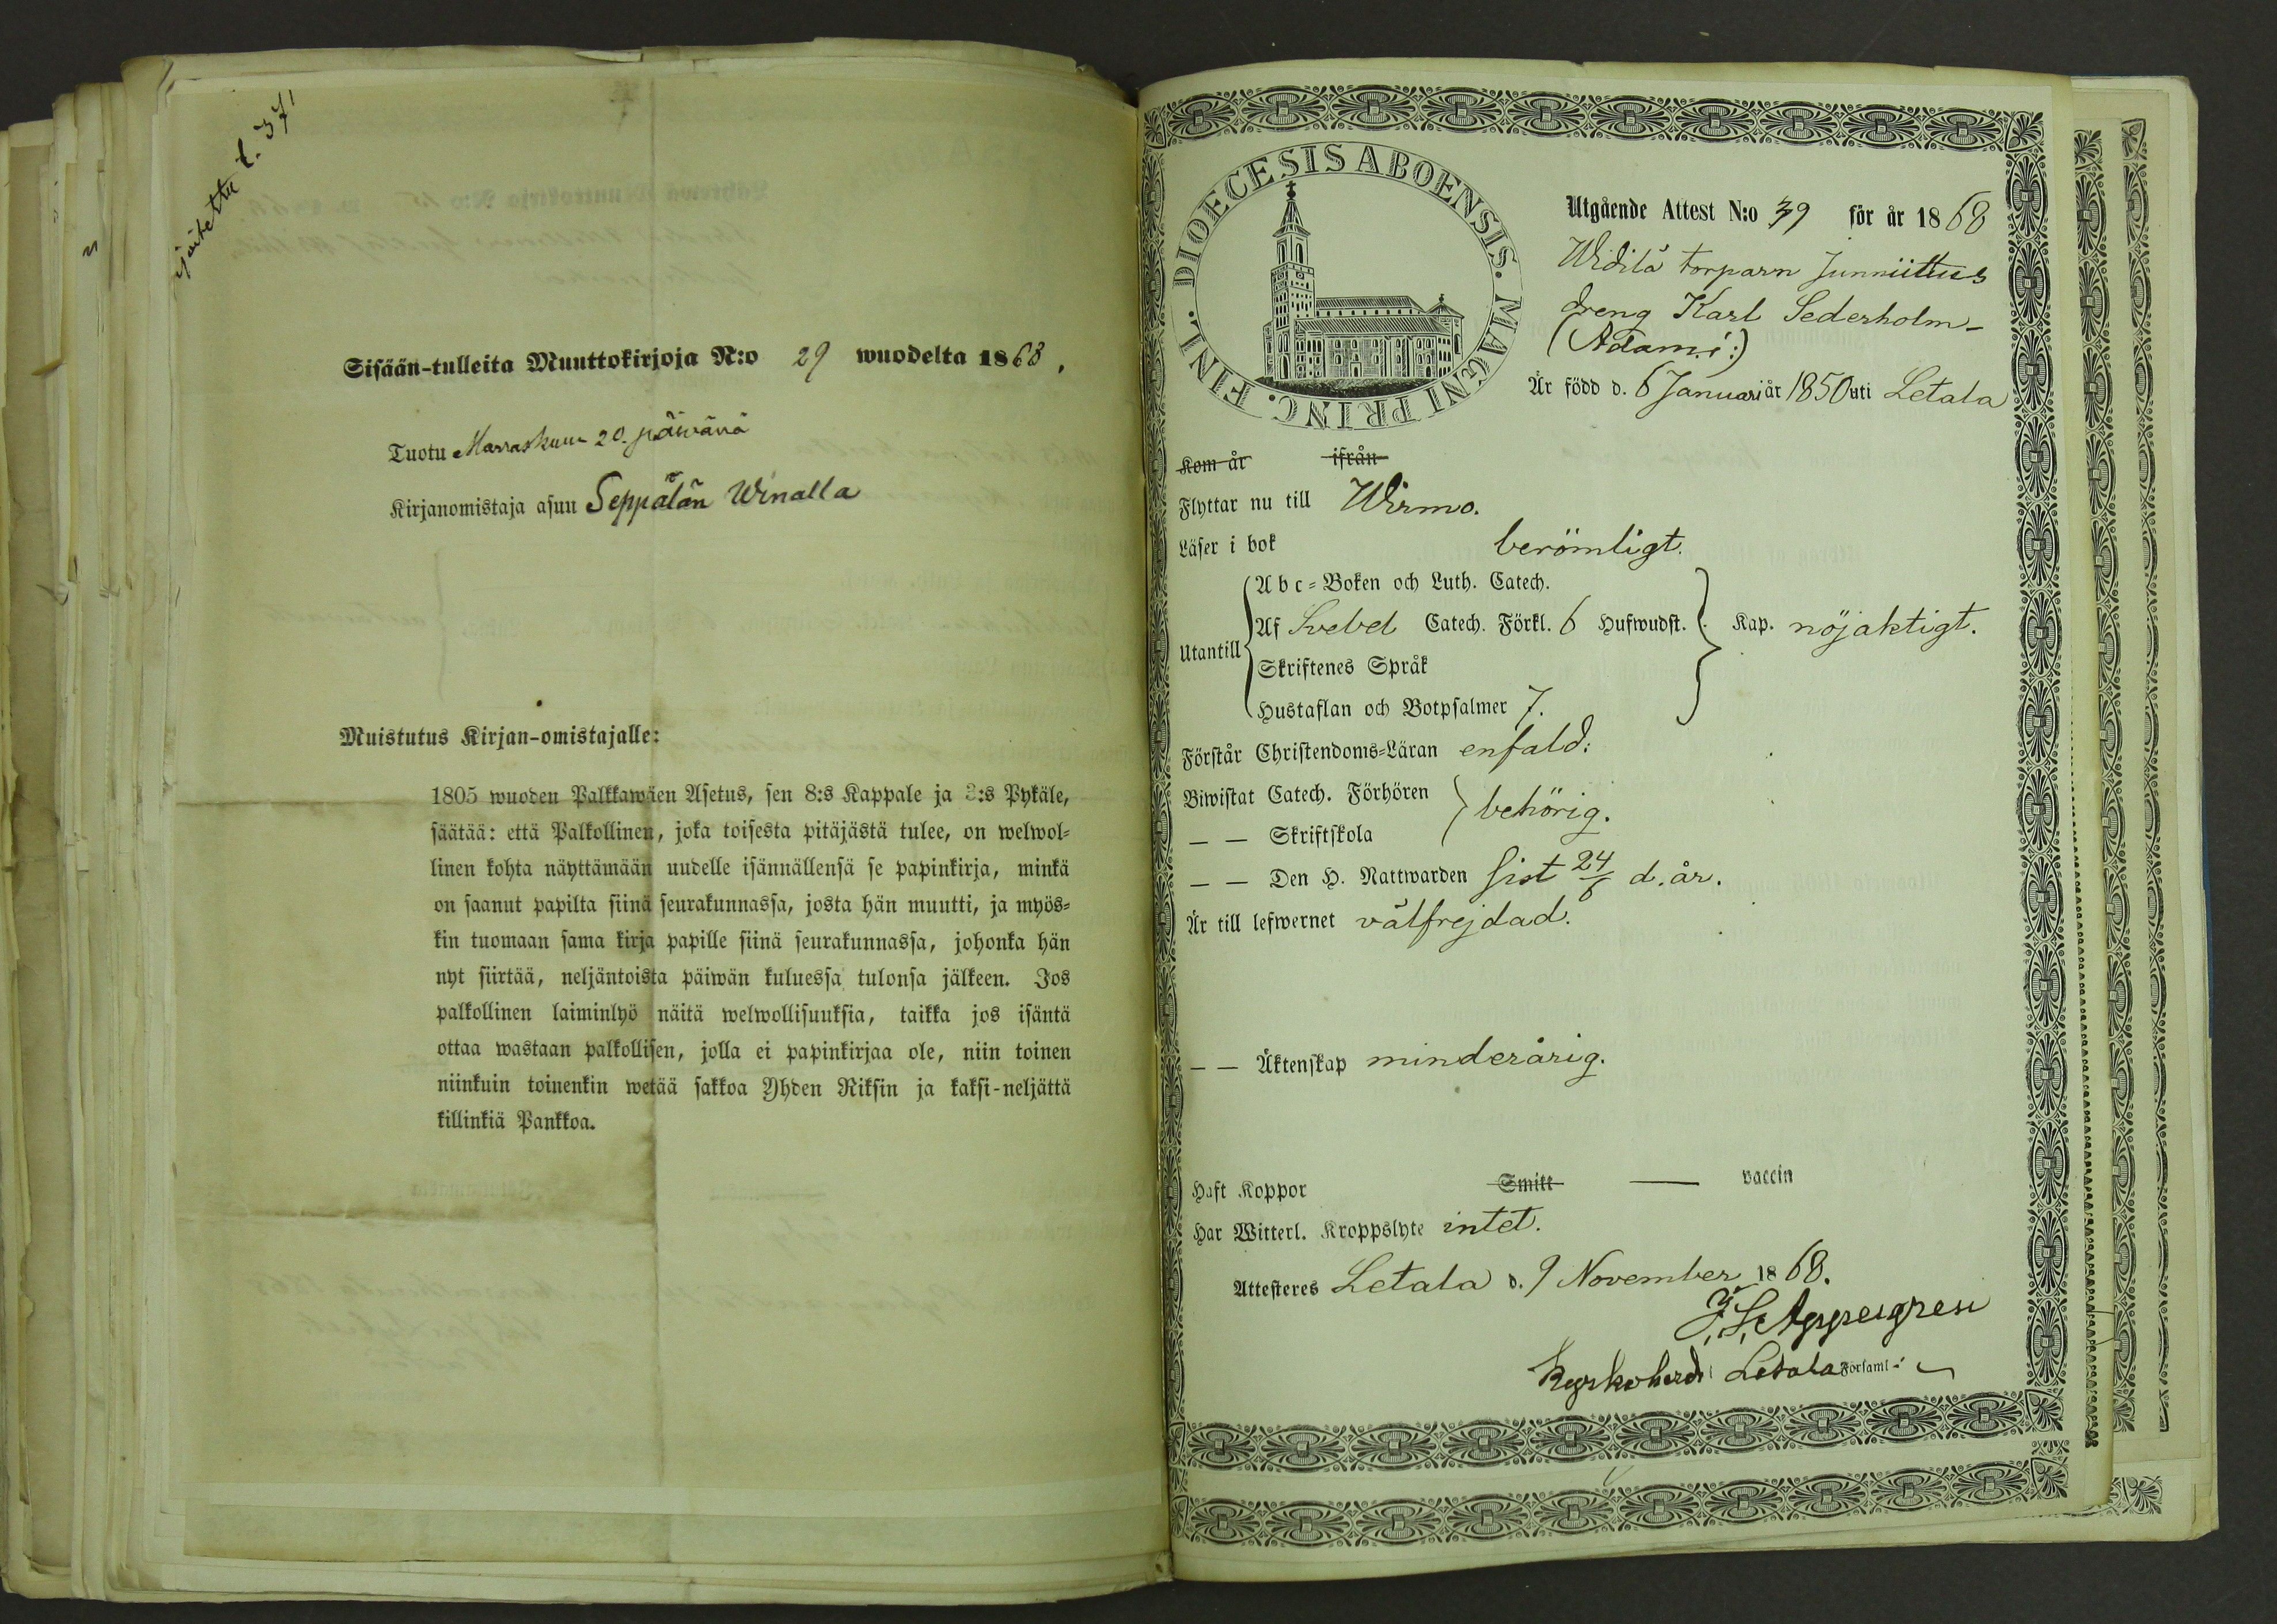 joitettu l. 371
Sisään-tulleita Muuttokirjoja N:o 29 wuodelta 1868.
Tuotu Marraskuun 20. päivänä
Kirjanomistaja asuu Seppälän Winalla
Muistutus Kirjan-omistajalle:
1805 wuoden Palkkawäen Asetus, sen 8:s Kappale ja 3:s Pykäle,
säätää: että Palkollinen, joka toisesta pitäjästä tulee, on welwol-
linen kohta näyttämään uudelle isännällensä se papinkirja, minkä
on saanut papilta siinä seurakunnassa, josta hän muutti, ja myös-
kin tuomaan sama kirja papille siinä seurakunnassa, johonka hän
nyt siirtää, neljäntoista päiwän kuluessa tulonsa jälkeen. Jos
palkollinen laiminlyö näitä welwollisuuksia, taikka jos isäntä
ottaa wastaan palkollisen, jolla ei papinkirjaa ole, niin toinen
niinkuin toinenkin wetää sakkoa Yhden Riksin ja kaksi-neljättä
killinkiä Pankkoa.
DIOECESIS ABOENSIS. MAGNI PRINC. FINL.
Utgående Attest N:o 39 för år 1868
Widilä torparn Junnüttus
dreng Karl Sederholm-
(Adami:)
Är född d. 6 Januari år 1850 uti Letala
Kom år ifrån
Flyttar nu till Wirmo.
Läser i bok berömligt.
Utantill
Abc-Boken och Luth. Catech.
Af Svebel Catech. Förkl. 6 Hufwudst. Kap. nöjaktigt.
Skriftenes Språk
Hustaflan och Botpsalmer 7.
Förstår Christendoms-Läran enfald:
Biwistat Catech. Förhören
— — Skriftskola behörig.
— — Den H. Nattwarden sist 24/6 d. år.
Är till lefwernet välfrejdad.
— — Äktenskap minderårig.
Haft Koppor Smitt — vaccin
Har Witterl. Kroppslyte intet.
Attesteres Letala d. 9 November 1868.
J. S. Appelgren
Kyrkoherde i Letala Församl: